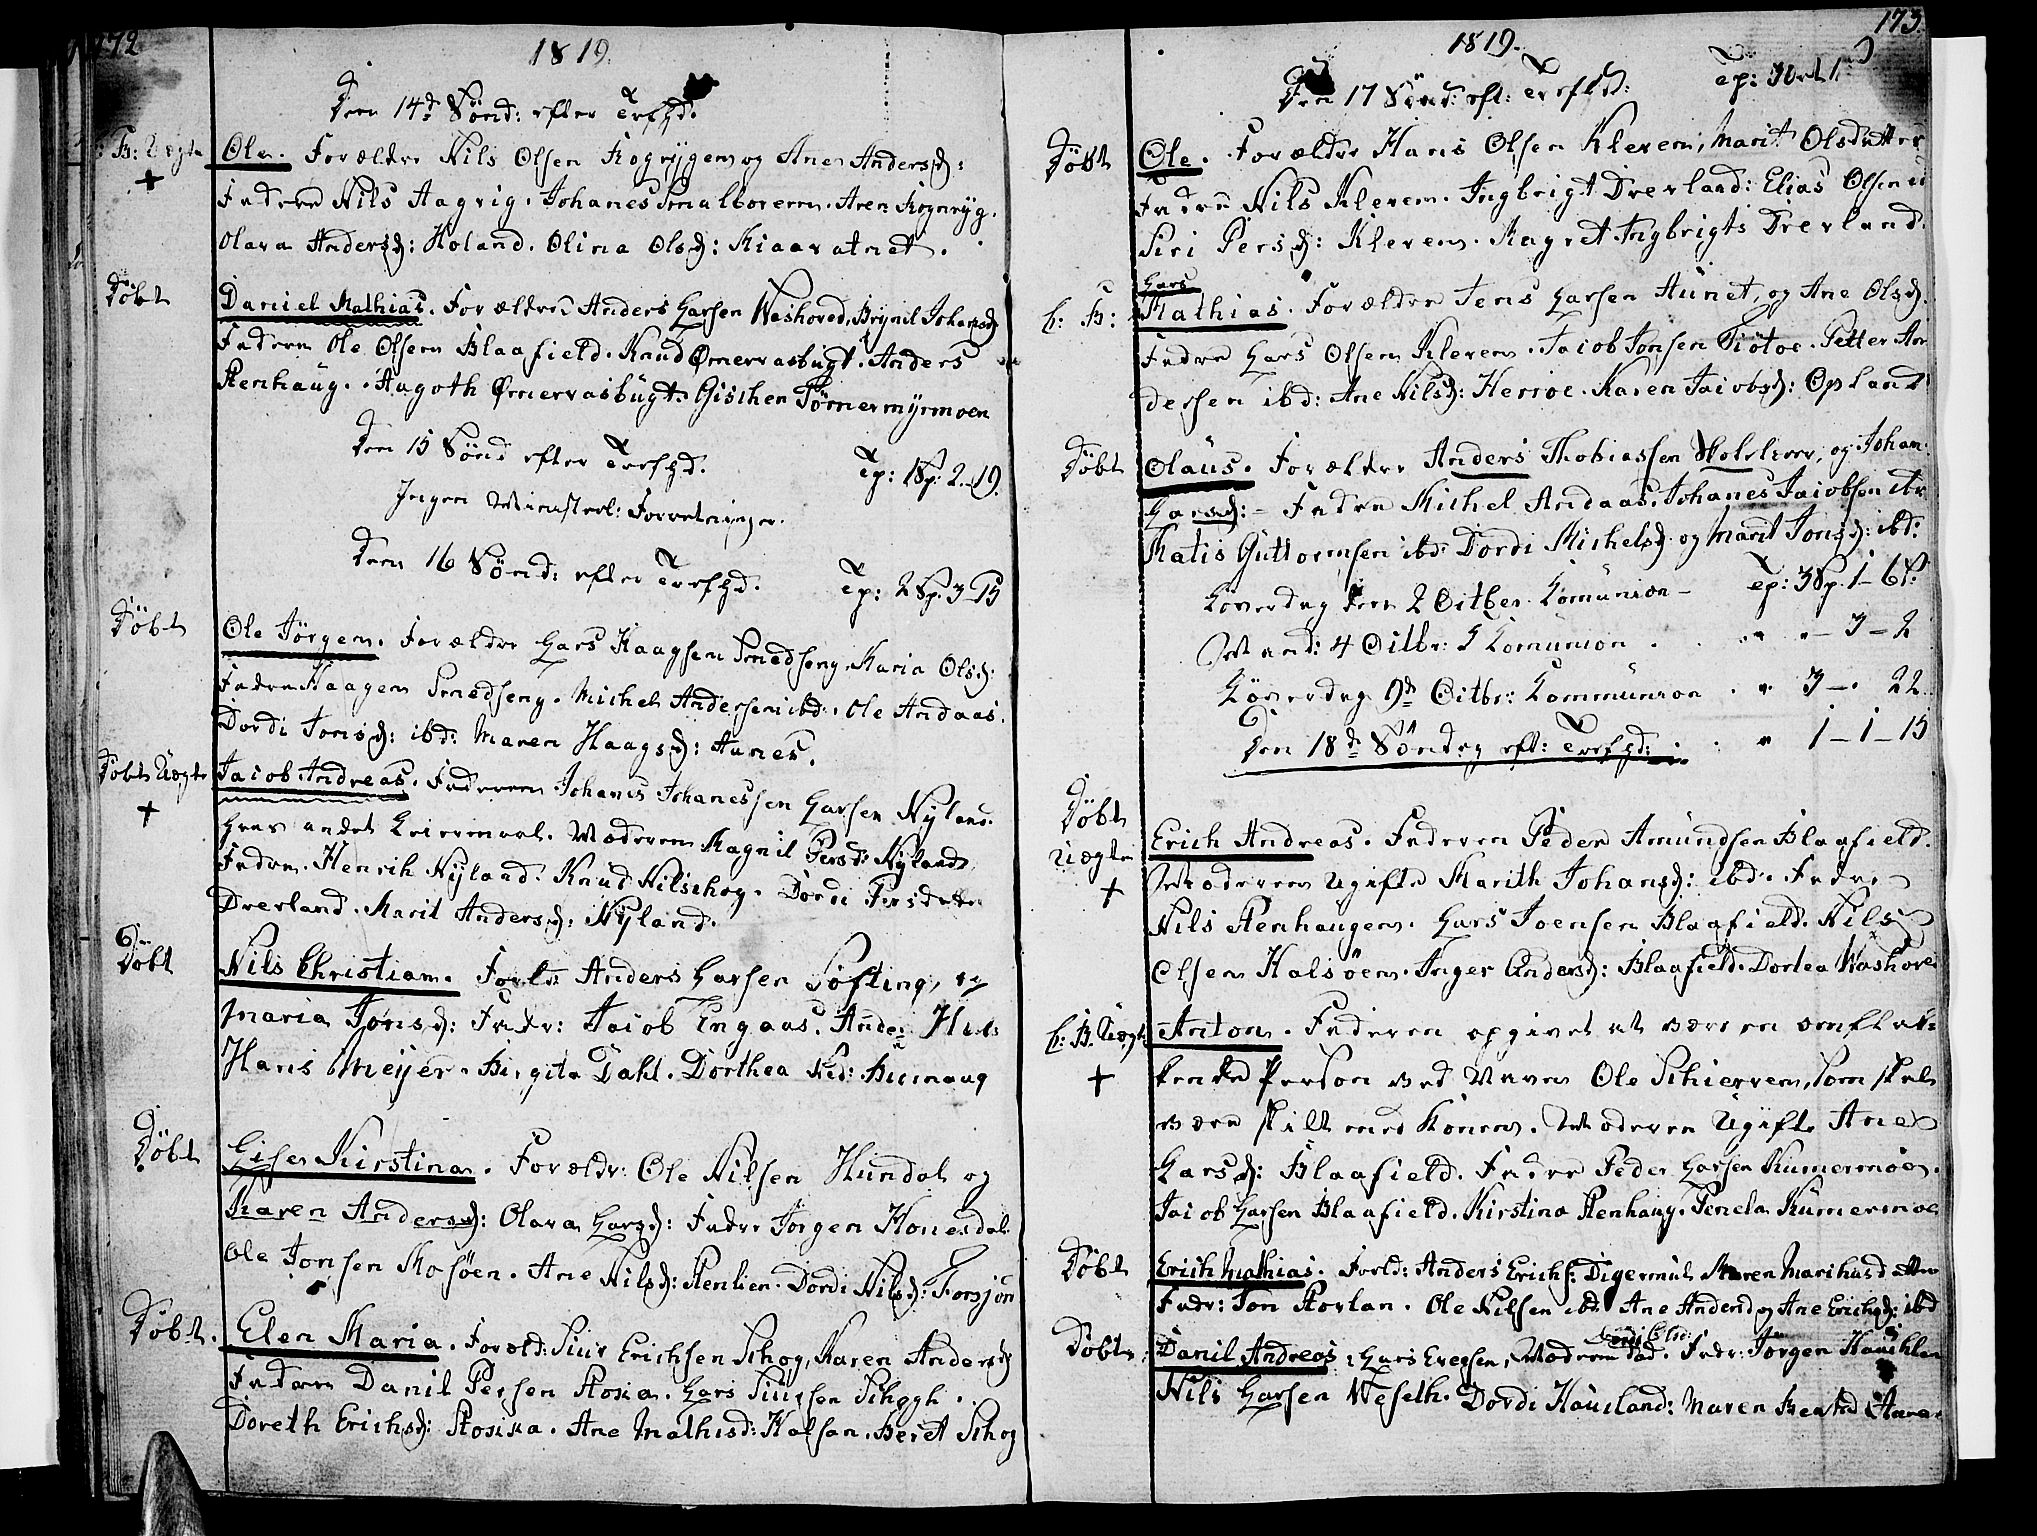 172
1819.
Den 14d Sönd: efter Trefhd.
B: Uægte Ole. Forældre Nils Olsen Kogrygen og Ane Andersd:
+ Faddere Nils Aagvig. Johanes Smalboren. Aren Kognryg.
Olava Andersd: Holand. Olina Olsd: Kiaarvatnet.
Döbt Daniel Mathias. Forældre Anders Larsen Washoved, Brynil Johansd
Faddere Ole Olsen Blaafield. Knud Ømervasbugt. Anders
Stenhaug. Aagoth Ømervasbugt. Gischen Tömermyrmoen
Den 15 Sönd efter Trefhd. Tp: 1Sp: 2.-19.
Ingen Ministerl: Forretninger.
Den 16 Sönd: efter Trefhd. Tp: 2 Sp. 3-15
Döbt Ole Jörgen. Forældre Lars Haagsen Smedseng. Maria Olsd:
Faddere Haagen Smedseng. Michel Andersen ibd: Ole Andaas.
Dordi Jonsd: ibd: Maren Haagsd: Aunes.
Döbt Uægte Jacob Andreas. Faderen Johanes Johanessen Larsen Nyland.
+ hans andet Leiermaal. Moderen Magnil Persd: Nyland
Faddere. Henrik Nyland. Knud Nilschog. Dordi Persdatter
Drevland. Marit Andersd: Nyland.
Döbt Nils Christian. Forældr Anders Larsen Söfting, og
Maria Jonsd: Faddr: Jacob Engaas. Ande:
Hans Meijer. Birgita Dahl. Dorthea
Döbt Gisken Kirstina. Forældr: Ole Nilsen Hundal og
Karen Andersd: Olava Larsd: Faddr Jörgen
Ole Jonsen Mosöen. Ane Nilsd: Stenlien. Dordi Nilsd: Forsjor
Döbt. Elen Maria. Foræld: Siur Erichsen Schog, Karen Andersd
Faddere Danil Persen Stosia. Lars Siursen Schogh.
Doreth Erichsd: Stosika. Ane Mathisd: Halsan. Beret Schog
173.
1819.
Den 17 Sönd: eft: Trefhd: Tp: 3
Döbt Ole. Forældre Hans Olsen Kleven, Marit Olsdatter
Faddre Nils Kleven. Ingbrigt Drevland: Elias Olsen
Siri Persd: Kleven. Magret Ingbrigts Drevland.
Lars
h: B: Mathias. Forældre Jens Larsen Aunet, og Ane Olsd.
Faddre Lars Olsen Kleven. Jacob Jonsen Tiötoe. Petter An
dersen ibd: Ane Nilsd: Herroe. Karen Jacobsd: Opland
Döbt Olaus. Forældre Anders Thobiassen og Johan
Larsd: - Faddre Michel Andaas. Johanes Jacobsen
Matis Guttormsen ibd. Dordi Michelsd. og Marit Jonsd: ibd:
Löverdag den 2 Octber Komunion - Tp: 3Sp. 1-6
Mand: 4 Octbr: Komunion . . " " - 3 - 2
Löverdag 9d Octbr: Kommunion . " 3 - . 22
Den 18d Söndag eft: Trefhd: . " 1-1-15
Döbt Erich Andreas. Faderen Peder Amundsen Blaafield.
Uægte Moderen Ugifte Marith Johansd: ibd. Faddre
+ Nils Stenhaugen. Lars Joensen Blaafield. Nils
Olsen Halsöen. Inger Andersd: Blaafield. Dortea Washoved
h: B. Uægte Anton. Faderen opgivet at være en omflak=
+ kende Person ved Navn Ole Schierven, som skal
være skilt med Konen. Moderen Ugift Ane
Larsd: Blaafield. Faddre Peder Larsen Kumermoen.
Jacob Larsen Blaafield. Kirstina Stenhaug. Penela Kumermoe
Döbt Erich Mathias. Forld: Anders Erichs: Digermul Maren Marihusdatter
Faddr: Jon Storlan. Ole Nilsen ibd Ane Andersd og Ane Erichsd: ibd
Döbt. Danil Andreas: Lars Moderen Faddr: Jörgen
Nils Larsen Weseth. Dordi Hauland: Maren